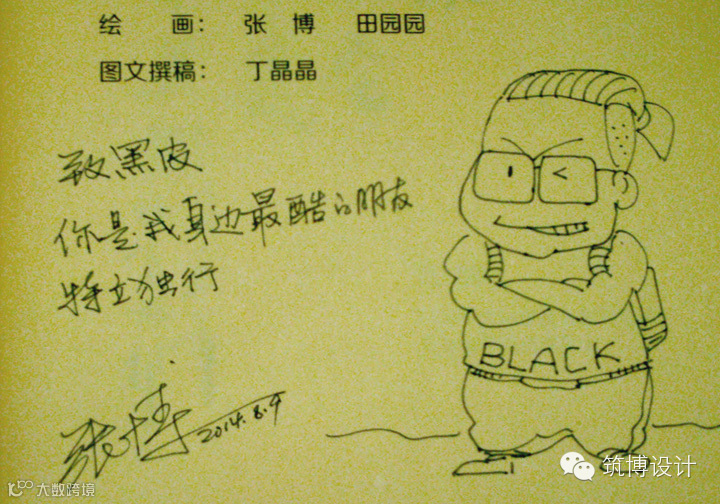 绘 画： 张 博 田园园
图文撰稿： 丁晶晶
致黑皮
你是我身边最酷的朋友
特立独行
张博 2014.8.9
BLACK
筑博设计
大数跨境